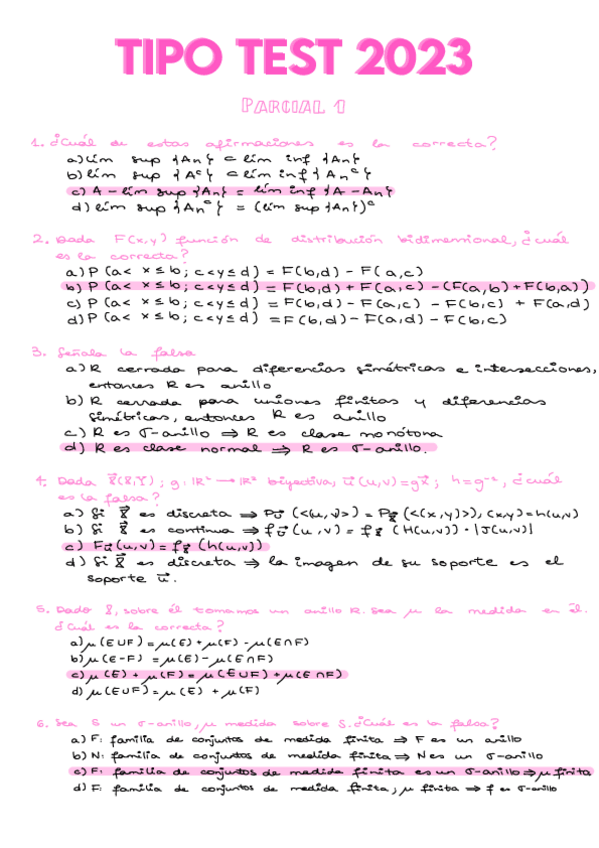 TIPO TEST 2023
PARCIAL 1
1. ¿Cuál de estas afirmaciones es la correcta?
a) lím sup {An} ⊂ lím inf {An}
b) lím sup {Aᶜ} ⊂ lím inf {Anᶜ}
c) A - lím sup {An} = lím inf {A - An}
d) lím sup {Anᶜ} = (lím sup {An})ᶜ
2. Dada F(x,y) función de distribución bidimensional, ¿cuál
es la correcta?
a) P(a< x ≤ b; c<y ≤ d) = F(b,d) - F(a,c)
b) P(a< x ≤ b; c<y ≤ d) = F(b,d) + F(a,c) - (F(a,b)+F(b,a))
c) P(a< x ≤ b; c<y ≤ d) = F(b,d) - F(a,c) - F(b,c) + F(a,d)
d) P(a< x ≤ b; c<y ≤ d) = F(b,d) - F(a,d) - F(b,c)
3. Señala la falsa
a) R cerrada para diferencias simétricas e intersecciones,
entonces R es anillo
b) R cerrada para uniones finitas y diferencias
simétricas, entonces R es anillo
c) R es σ-anillo ⇒ R es clase monótona
d) R es clase normal ⇒ R es σ-anillo.
4. Dada X⃗(X,Y); g: ℝ² → ℝ² biyectiva, u⃗(u,v)=gX⃗; h=g⁻¹, ¿cuál
es la falsa?
a) Si X⃗ es discreta ⇒ Pu⃗ (<(u,v)>) = PX⃗ (<(x,y)>), (x,y)=h(u,v)
b) Si X⃗ es continua ⇒ fu⃗ (u,v) = fX⃗ (h(u,v)) · |J(u,v)|
c) Fu⃗(u,v) = fX⃗ (h(u,v))
d) Si X⃗ es discreta ⇒ la imagen de su soporte es el
soporte u⃗.
5. Dado X, sobre él tomamos un anillo R. Sea μ la medida en él.
¿Cuál es la correcta?
a) μ(E∪F) = μ(E) + μ(F) - μ(E∩F)
b) μ(E-F) = μ(E) - μ(E∩F)
c) μ(E) + μ(F) = μ(E∪F) + μ(E∩F)
d) μ(E∪F) = μ(E) + μ(F)
6. Sea S un σ-anillo, μ medida sobre S. ¿Cuál es la falsa?
a) F: familia de conjuntos de medida finita ⇒ F es un anillo
b) N: familia de conjuntos de medida finita ⇒ N es un σ-anillo
c) F: familia de conjuntos de medida finita es un σ-anillo ⇒ μ finita
d) F: familia de conjuntos de medida finita, μ finita ⇒ f es σ-anillo